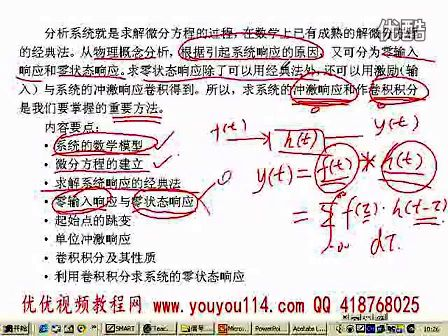 优酷
分析系统就是求解微分方程的过程,在数学上已有成熟的解微分方程
的经典法。从物理概念分析,根据引起系统响应的原因,又可分为零输入
响应和零状态响应。求零状态响应除了可以用经典法外,还可以用激励(输
入)与系统的冲激响应卷积得到。所以,求系统的冲激响应和作卷积积分
是我们要掌握的重要方法。
内容要点:
• 系统的数学模型
• 微分方程的建立
• 求解系统响应的经典法
• 零输入响应与零状态响应
• 起始点的跳变
• 单位冲激响应
• 卷积积分及其性质
• 利用卷积积分求系统的零状态响应
f(t) h(t) y(t)
y(t) = f(t) * h(t)
= ∫ f(τ) · h(t-τ)
dτ
优优视频教程网 www.youyou114.com QQ 418768025
SMART
Microsof...
PowerPoi
Acetate L...
10:26